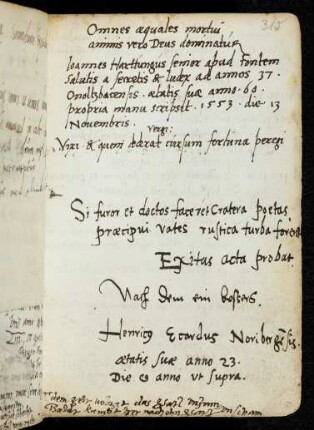 315
Omnes æquales mortui
animis vero Deus dominatur
Ioannes Hartungus senior apud Fontem
salutis a secretis & iudex ad annos 37.
Onoltzbacensis. ætatis suæ anno. 60.
propria manu scripsit. 1553. die 13
Novembris.
Vergi:
Vixi & quem dederat cursum fortuna peregi
Si furor et doctos faceret Cratera poetas
præcipui vates rustica turba foret
Exitus acta probat.
Nach dem ein bessers.
Henricus Ecardus Noribergensis.
ætatis suæ anno 23.
Die & anno ut supra.
dem das